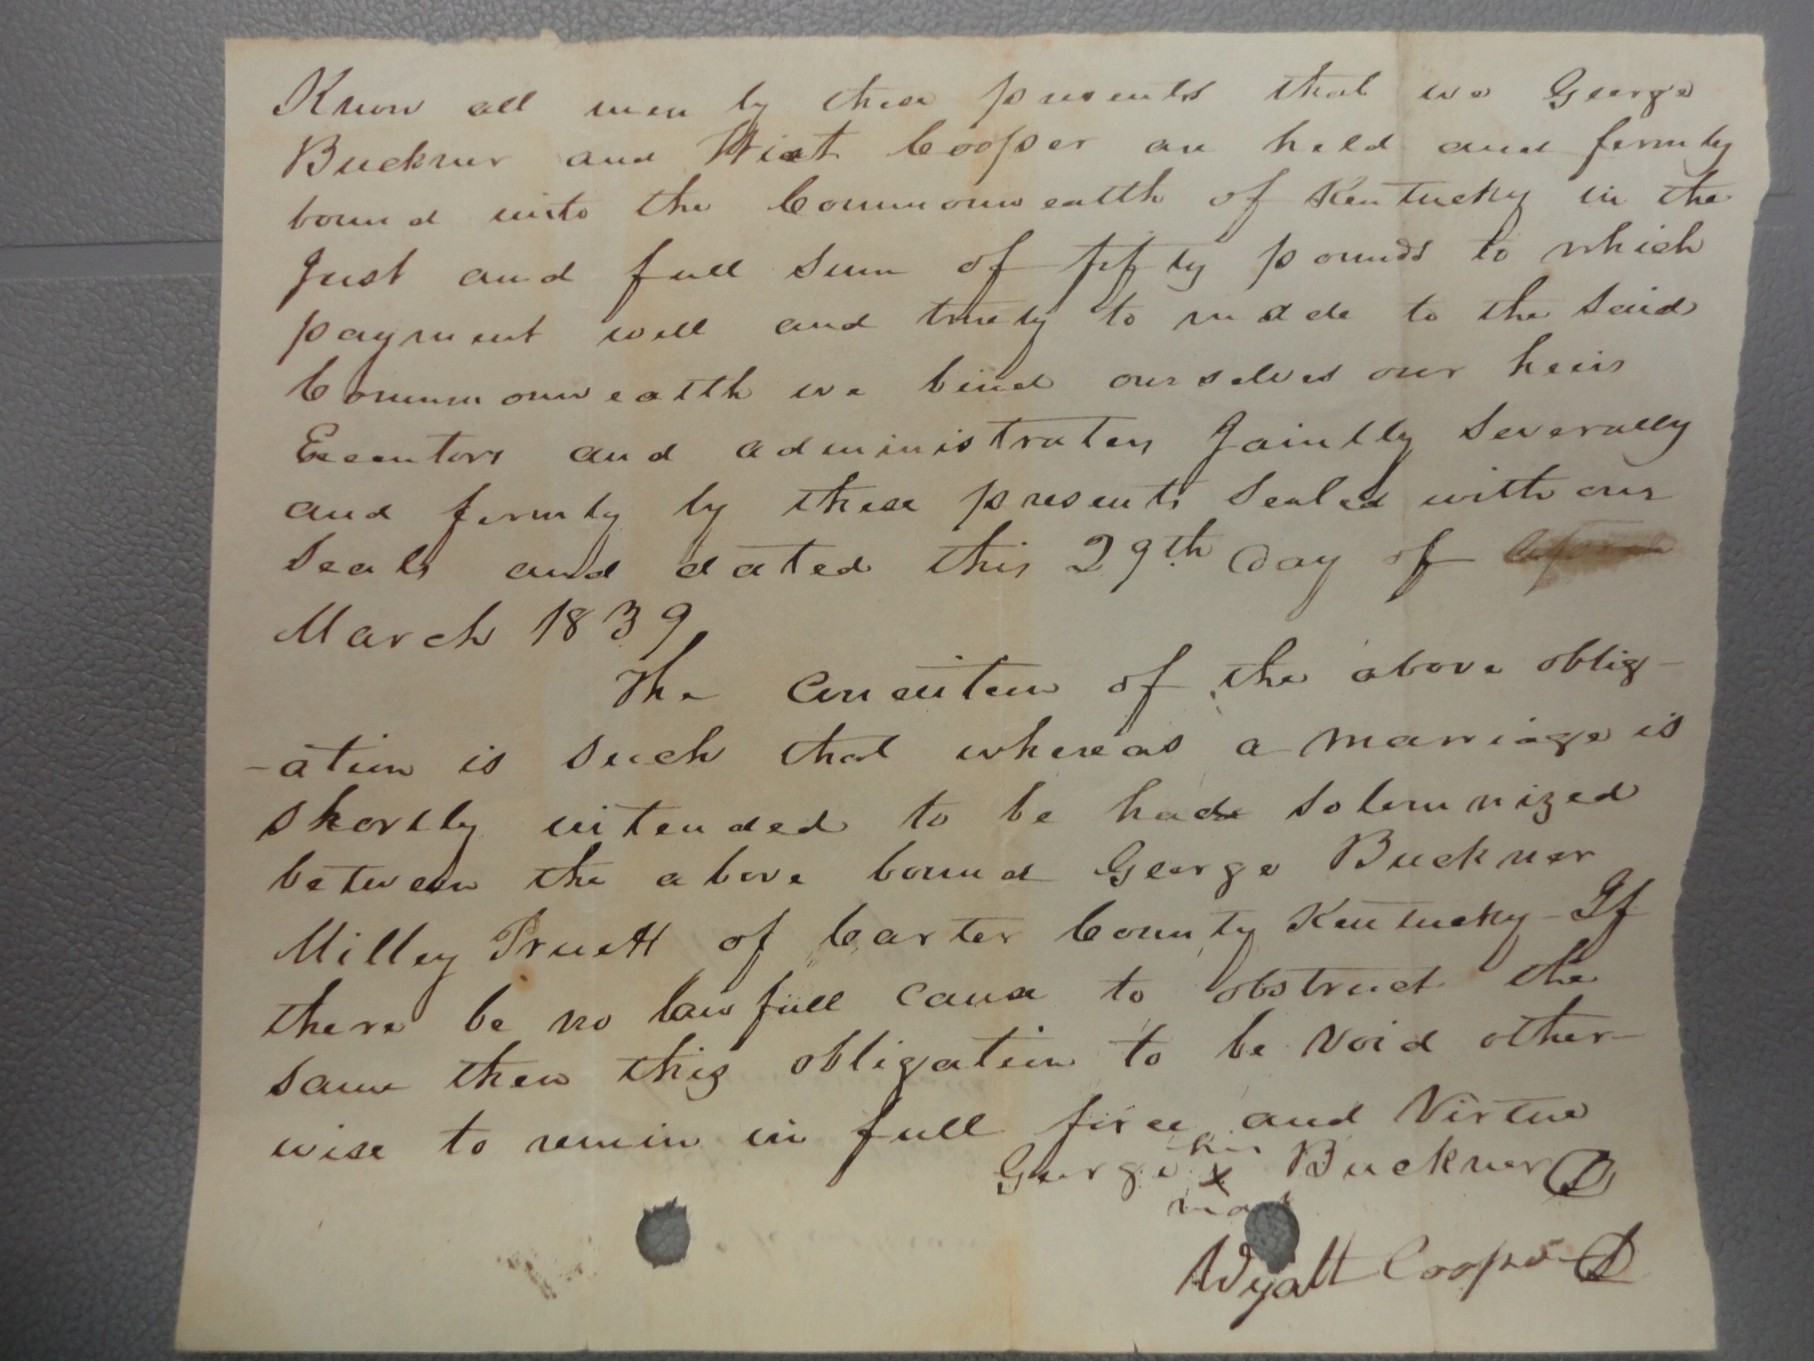 Know all men by these presents that we George
Buckner and Wiat Cooper are held and firmly
bound unto the Commonwealth of Kentucky in the
Just and full Sum of fifty pounds to which
payment well and truely to made to the Said
Commonwealth we bind ourselves our heirs
Executors and administraters Jointly Severally
and firmly by these presents Sealed with our
Seals and dated this 29th day of
March 1839
The Condition of the above oblig-
-ation is such that whereas a marriage is
shortly intended to be had Solemnized
between the above bound George Buckner
Milley Pruett of Carter County Kentucky - If
there be no lawfull cause to obstruct the
same then this obligation to be void other-
wise to remin in full force and Virtue
his
George X Buckner
mark
Wyatt Cooper